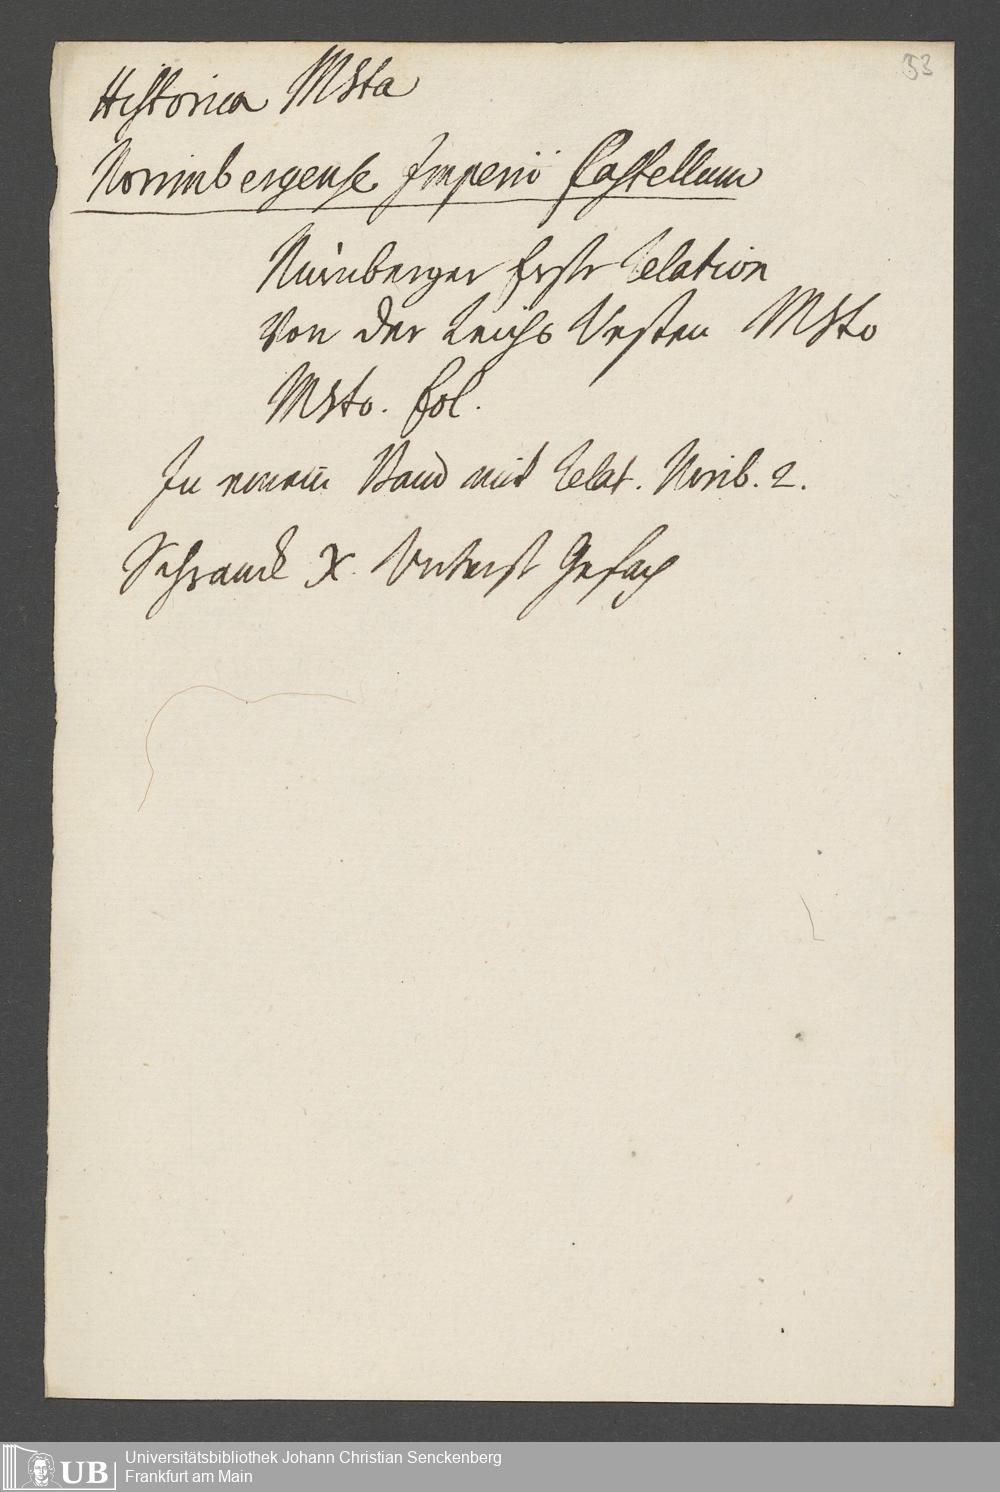 53
Historica Mssta
Norimbergense Imperii Castellum
Nürnberger Erste Relation
Von der Reichs Vesten Mssto
Mssto. fol.
In einem Band mit Relat. Norib. 2.
Schranck X. Unterst Gefach
UB
Universitätsbibliothek Johann Christian Senckenberg
Frankfurt am Main